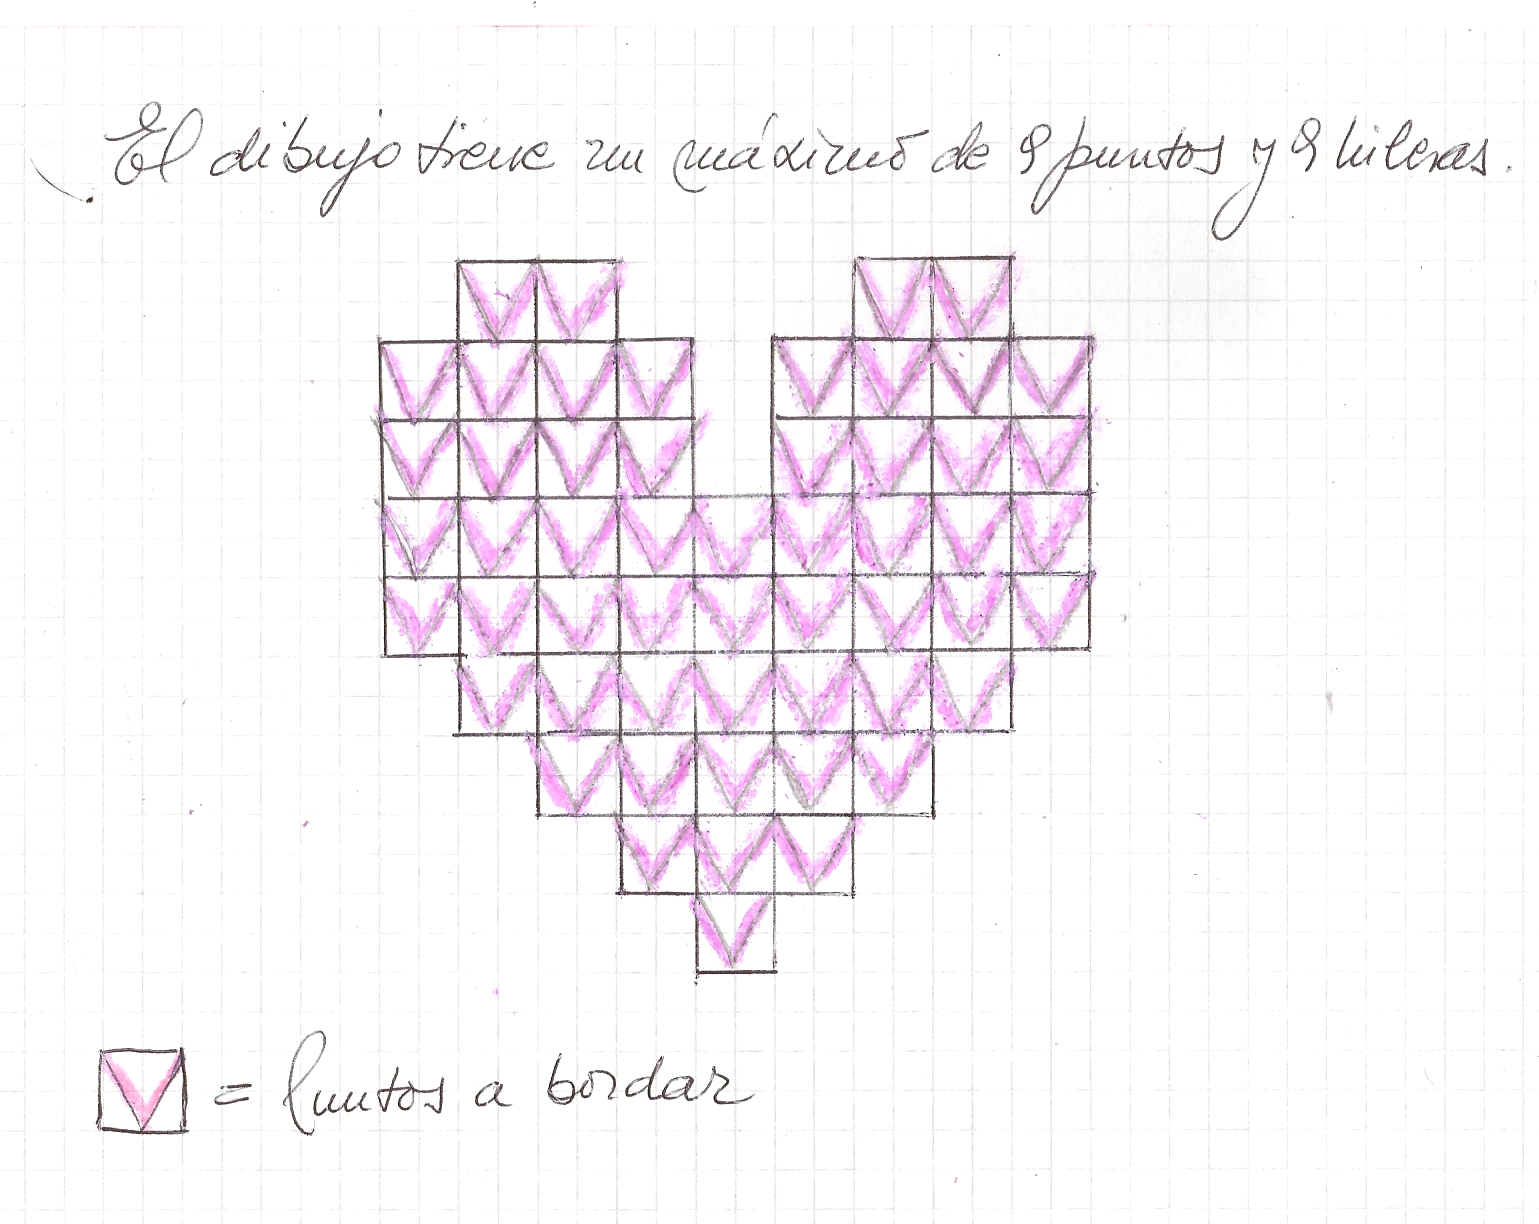 El dibujo tiene un máximo de 9 puntos y 9 hileras.
= Puntos a bordar